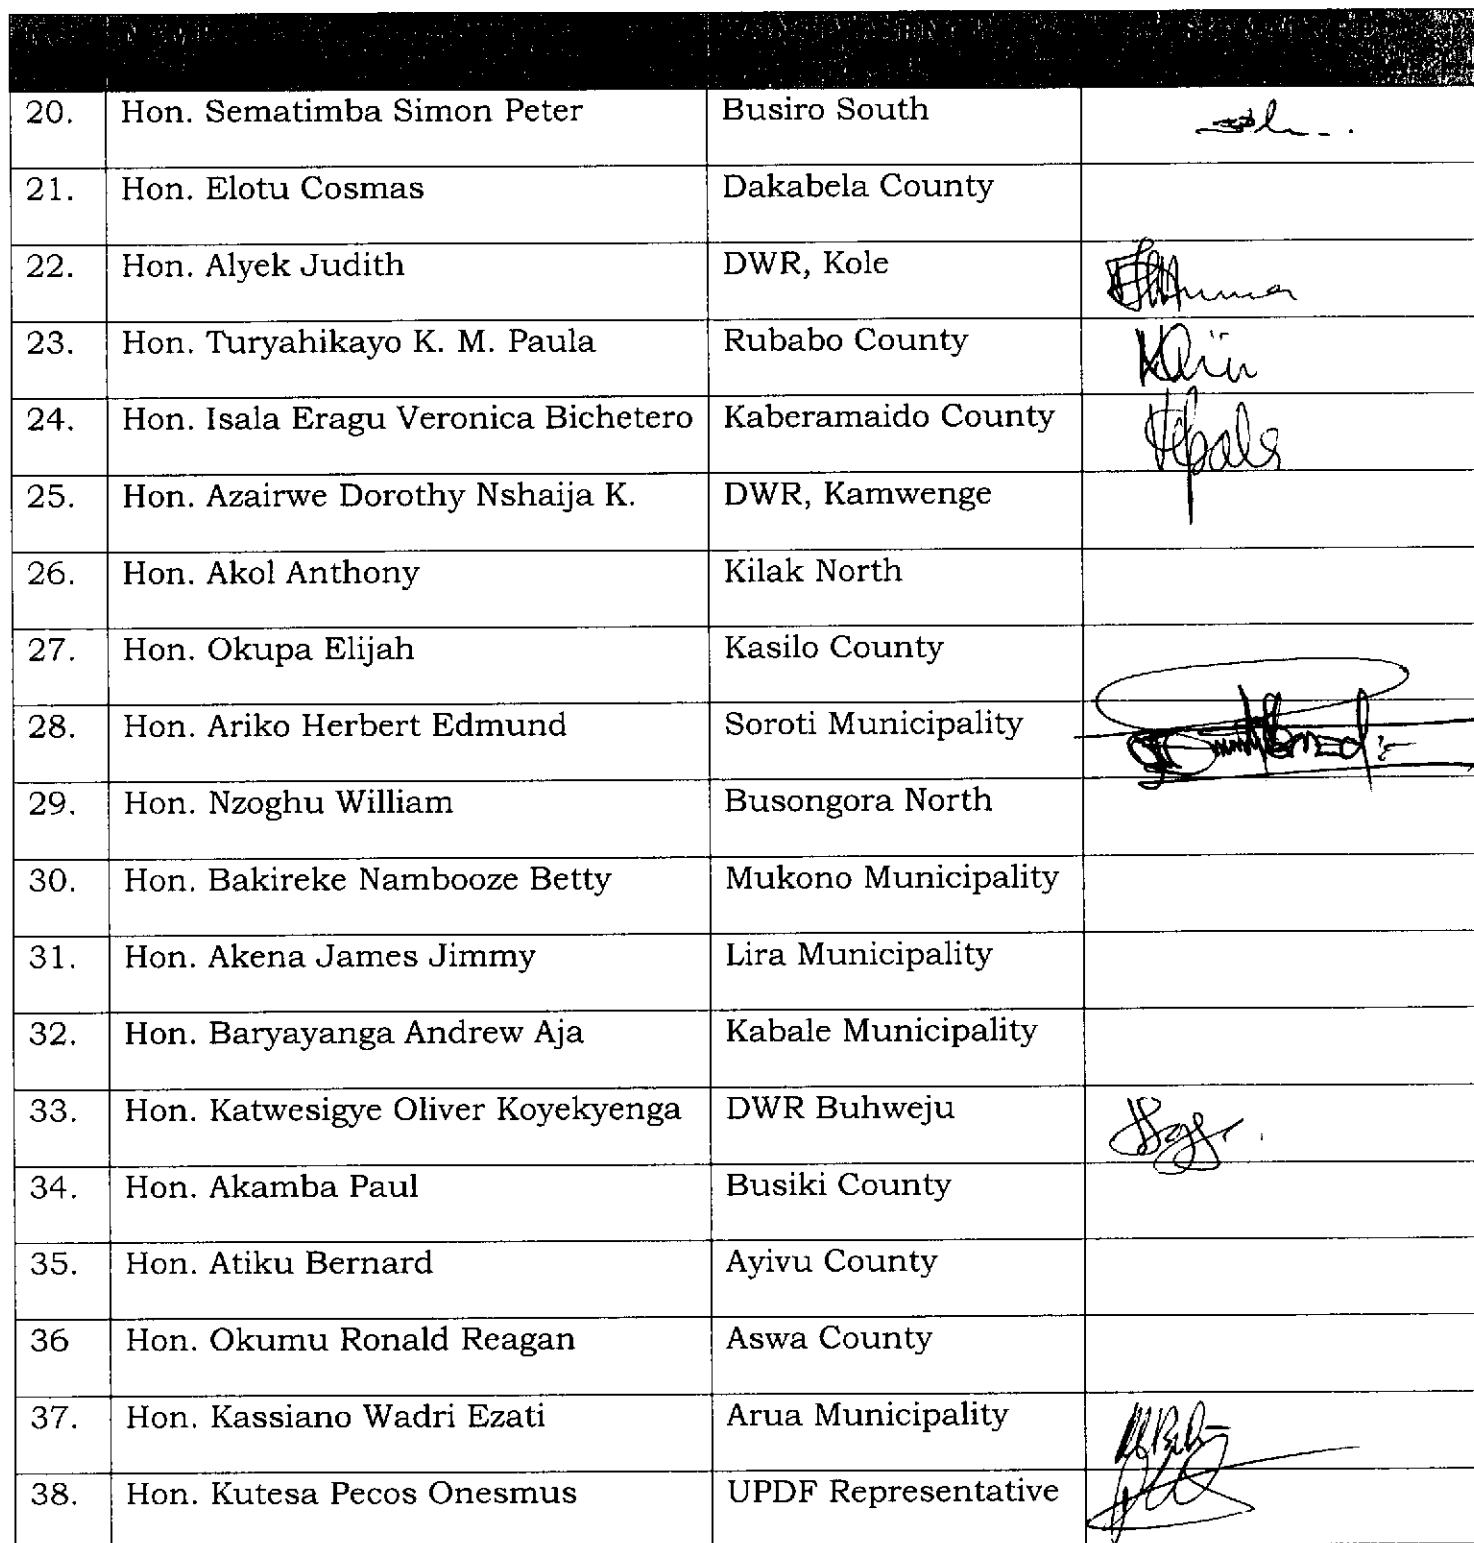 20. Hon. Sematimba Simon Peter Busiro South
21. Hon. Elotu Cosmas Dakabela County
22. Hon. Alyek Judith DWR, Kole
23. Hon. Turyahikayo K. M. Paula Rubabo County
24. Hon. Isala Eragu Veronica Bichetero Kaberamaido County
25. Hon. Azairwe Dorothy Nshaija K. DWR, Kamwenge
26. Hon. Akol Anthony Kilak North
27. Hon. Okupa Elijah Kasilo County
28. Hon. Ariko Herbert Edmund Soroti Municipality
29. Hon. Nzoghu William Busongora North
30. Hon. Bakireke Nambooze Betty Mukono Municipality
31. Hon. Akena James Jimmy Lira Municipality
32. Hon. Baryayanga Andrew Aja Kabale Municipality
33. Hon. Katwesigye Oliver Koyekyenga DWR Buhweju
34. Hon. Akamba Paul Busiki County
35. Hon. Atiku Bernard Ayivu County
36 Hon. Okumu Ronald Reagan Aswa County
37. Hon. Kassiano Wadri Ezati Arua Municipality
38. Hon. Kutesa Pecos Onesmus UPDF Representative